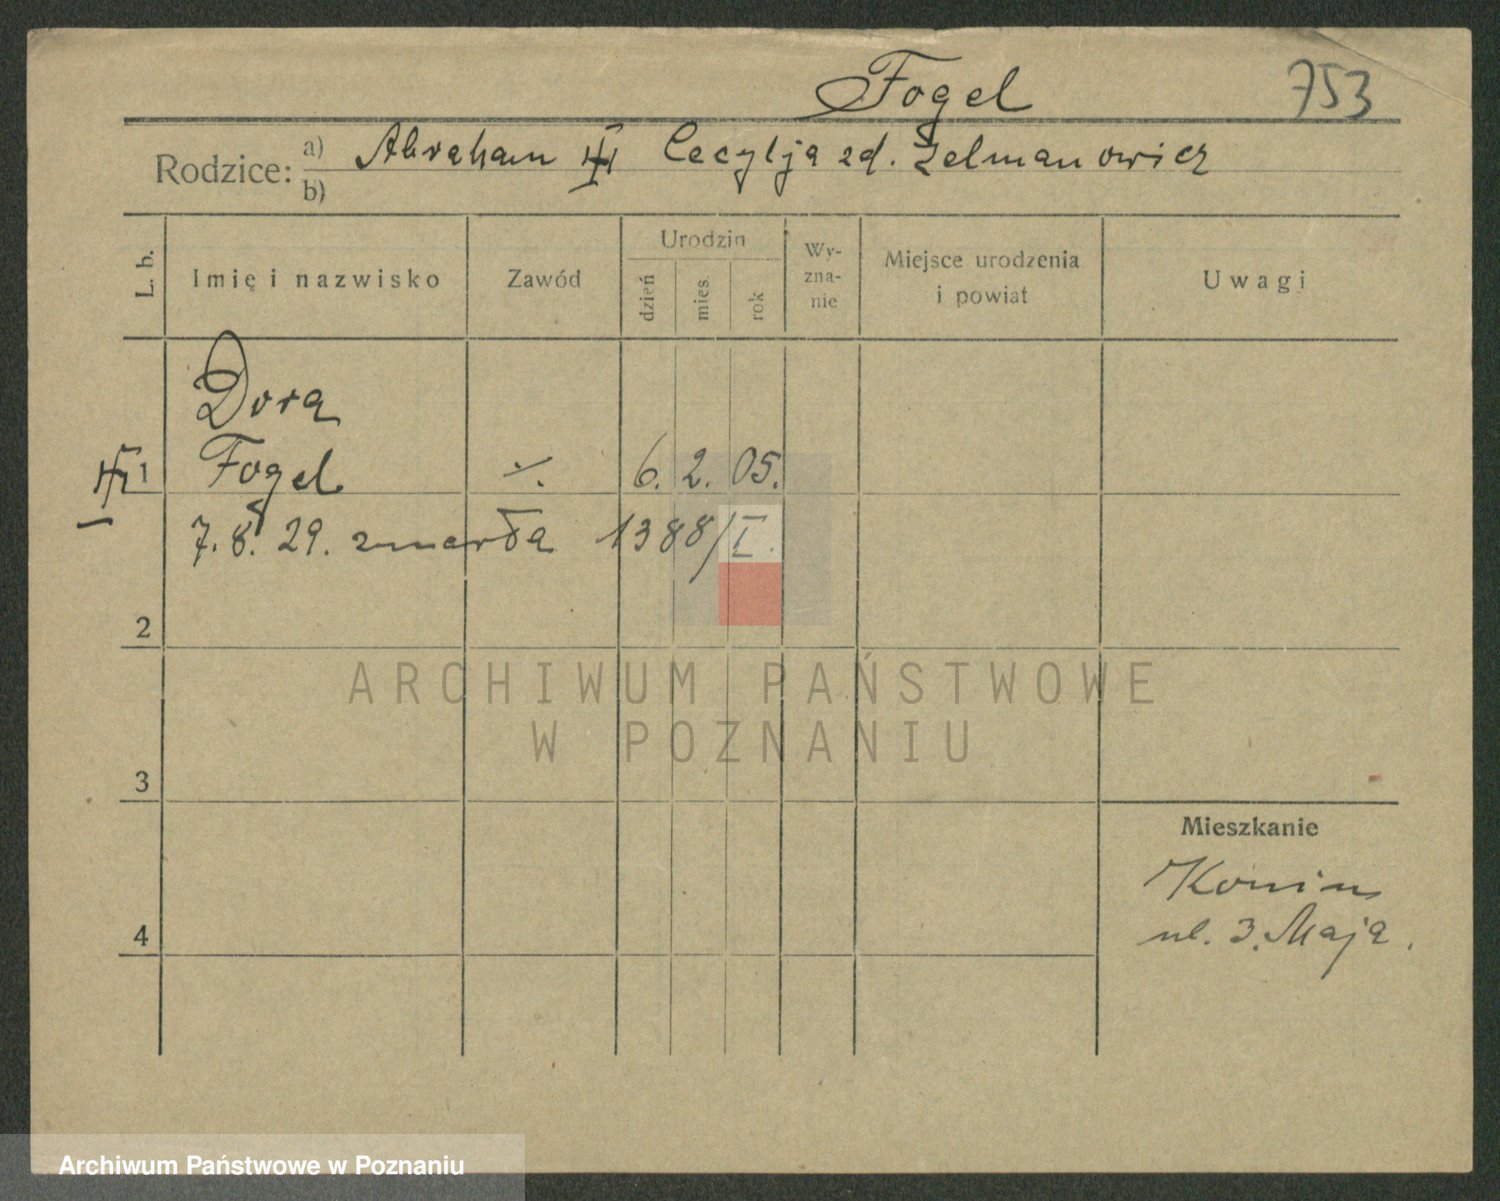 Fogel 753
Rodzice: a) Abraham Cecylja zd. Zelmanowicz
b)
L. b. Imię i nazwisko Zawód Urodzin dzień mies. rok Wy-zna-nie Miejsce urodzenia i powiat Uwagi
Dora
1 Fogel ·/. 6. 2. 05.
7. 8. 29. zmarła 1388/I.
2
3
Mieszkanie
Konin
4 ul. 3. Maja.
ARCHIWUM PAŃSTWOWE
W POZNANIU
Archiwum Państwowe w Poznaniu